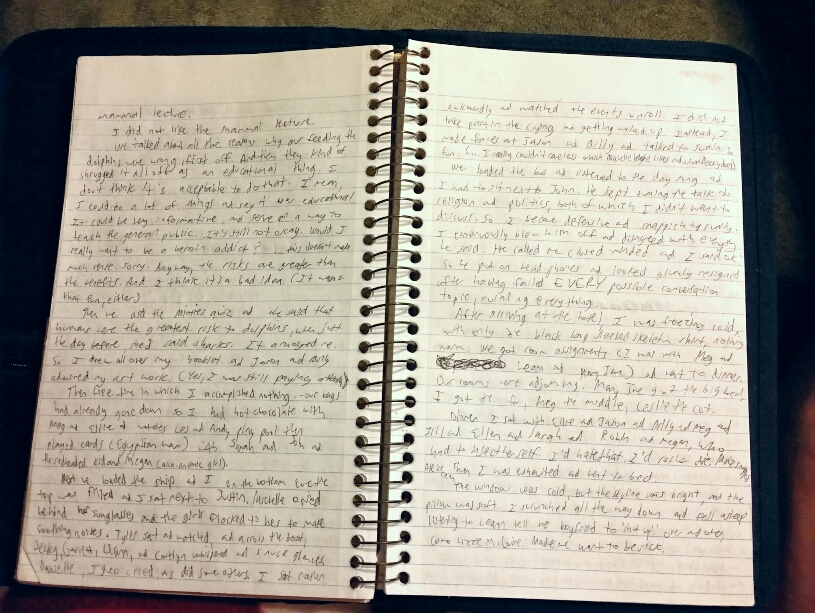 mammal lecture.
I did not like the mammal lecture.
we talked about all the reasons why our feeding the
dolphins was wrong, first off. And then they kind of
shrugged it all off as an educational thing. I
don't think it's acceptable to do that. I mean,
I could do a lot of things and say it was educational
It could be very informative, and serve as a way to
teach the general public. It's still not okay. Would I
really want to be a heroin addict? ... this doesn't make
much sense sorry. Anyway, the risks are greater than
the benefits. And I think it's a bad idea. (It wasn't
that fun, either)
Then we did the quiz and we said that
humans were the greatest risk to dolphins, when just
the day before they said sharks. It annoyed me.
So I drew all over my booklet and Jason and Ailly
admired my art work. (Yes, I was still paying attention)
Then free time in which I accomplished nothing - our bags
had already gone down so I had hot chocolate with
Meg and Ellie and watched Les and Andy play pool then
played cards (Egyptian war) with Sarah and and
the redheaded kid and Megan (aka meme girl).
Next we loaded the ship and I on the bottom cuz the
top was filled and I sat next to Justin. Michelle cried
behind her sunglasses and the girls flocked to her to make
soothing noises. Tyler sat and watched, and across the boat,
Becky, Garrett, and Caitlyn whispered and snuck glances
Danielle, I also cried, as did some others. I sat rather
awkwardly and watched the events unroll. I did not
take part in the crying and getting worked up. Instead, I
made faces at Jason and Ailly and talked to Justin. It
fun. I really couldn't care less what
We loaded the bus and listened to Die
I and to it next to John. He kept turning the talk to
religion and politics, both of which I didn't want to
discuss. So I became defensive and snappish
I continuously blew him off and disagreed with everything
he said. He called me closed minded and I said "ok"
So he put on head phones and looked glumly resigned
after having failed EVERY possible conversation
topic, ruining everything.
After arriving at the hotel I was freezing cold,
with only the black long sleeved skeleton shirt, nothing
warm. We got room assignments (I was with Meg and
Leann and Mary Jane) and went to dinner.
Our rooms were adjoining. Mary Jane got the big bed,
I got the far, Meg the middle, the cot.
Dinner I sat with Ellie and Jason and Ailly and Meg and
Jill and Ellen and Sarah and Robin and Megan, who
had to I'd hate that. I'd
Then I was exhausted and went to bed.
The window was cold, but the skyline was bright, and the
pillow was soft. I scrunched all the way down and fell asleep
listening to Leann tell her boyfriend to "shut up" over and over,
Lizzie McGuire. Made me want to be sick.